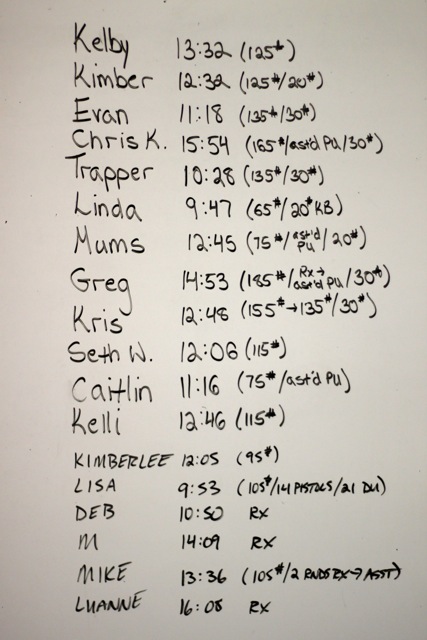 Kelby 13:32 (125#)
Kimber 12:32 (125#/20#)
Evan 11:18 (135#/30#)
Chris K. 15:54 (165#/ast'd PU/30#)
Trapper 10:28 (135#/30#)
Linda 9:47 (65#/20# KB)
Mums 12:45 (75#/ast'd PU/20#)
Greg 14:53 (185#/Rx→ast'd PU/30#)
Kris 12:48 (155#→135#/30#)
Seth W. 12:06 (115#)
Caitlin 11:16 (75#/ast'd PU)
Kelli 12:46 (115#)
KIMBERLEE 12:05 (95#)
LISA 9:53 (105#/14 PISTOLS/21 DU)
DEB 10:50 RX
M 14:09 RX
MIKE 13:36 (105#/2 RNDS RX→ASST)
LUANNE 16:08 RX